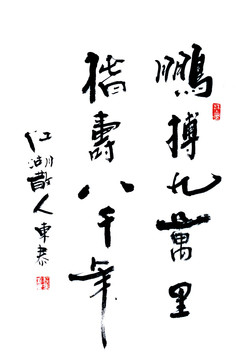 鵬搏九萬里
椿壽八千年
江湖散人東